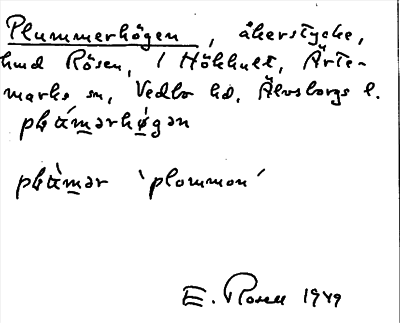 Plummerhögen, åkerstycke,
hmd Rösen, 1 Hökhult, Ärte-
marks sn, Vedbo hd, Älvsborgs l.
pɫʉ́mərhø̀gən
pɫʉ̀mər 'plommon'
E. Rosell 1949